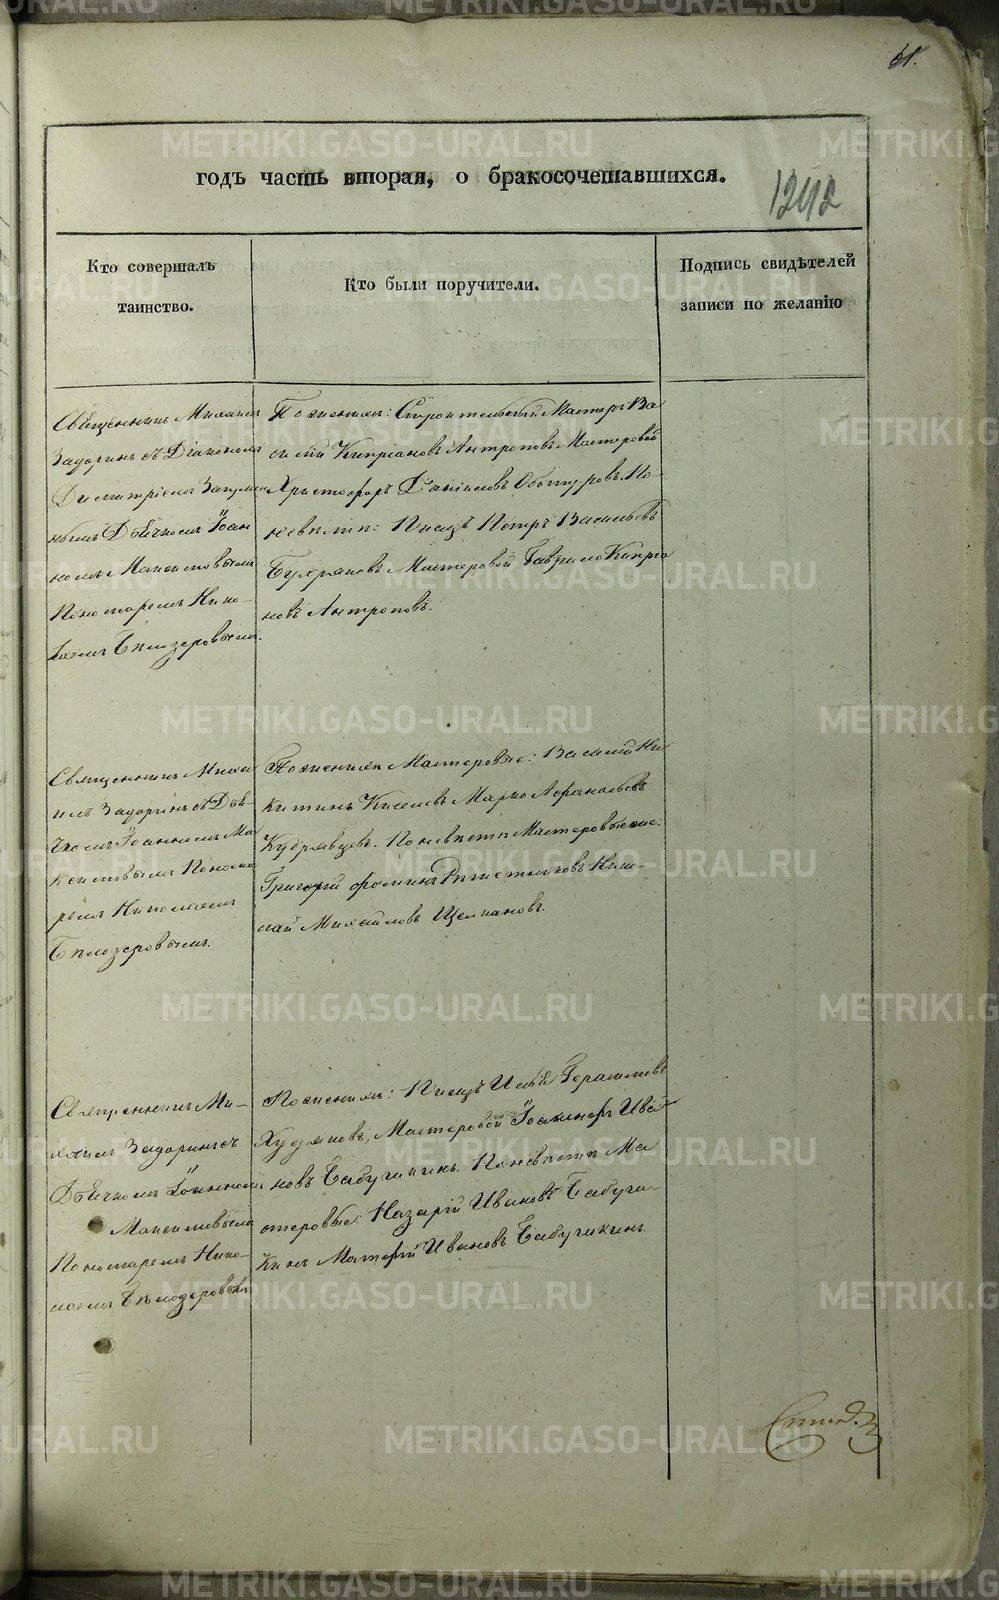 61.
годъ часть вторая, о бракосочетавшихся.
1242
Кто совершалъ
таинство.
Кто были поручители.
Подпись свидѣтелей
записи по желанію
Священникъ Михаилъ
Задоринъ съ Діакономъ
Димитріемъ
Дьячкомъ Іоан
номъ Максимовымъ
Пономаремъ Нико-
лаемъ Бѣлозеровымъ.
По женихѣ: Строительный Мастеръ Ва
силій Кипріановъ Антроповъ Мастеровой
Христофоръ Даниловъ Обогуровъ. По
невѣстѣ: Писецъ Петръ Васильевъ
Бухряковъ Мастеровой Гаврило Кипріа
новъ Антроповъ.
Священникъ Миха
илъ Задоринъ съ Дья-
чкомъ Іоанномъ Ма
ксимовымъ Понома
ремъ Николаемъ
Бѣлозеровымъ.
По женихѣ Мастеровые: Василій Ни
китинъ Киселевъ Марко Афанасьевъ
Кудрявцевъ. По невѣстѣ Мастеровые
Григорій Фоминъ Нико-
лай Михайловъ
Священникъ Ми-
хаилъ Задоринъ съ
Дьячкомъ Іоанномъ
Максимовымъ
Пономаремъ Нико-
лаемъ Бѣлозеровымъ
По женихѣ: Писецъ Герасимовъ
Худяковъ, Мастеровой Іоакинфъ Ива
новъ Бабушкинъ. По невѣстѣ Ма
стеровые: Назарій Ивановъ Бабуш-
кинъ Матфій Ивановъ Бабушкинъ
METRIKI.GASO-URAL.RU